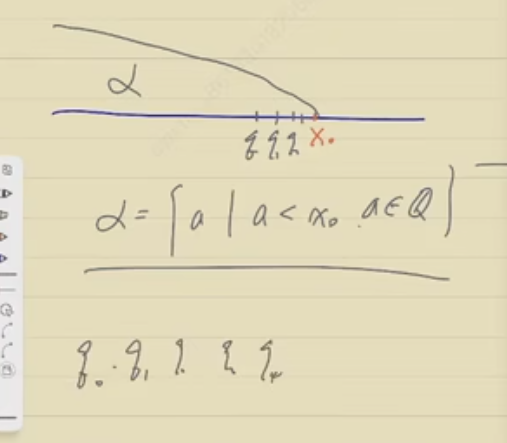 α
q q q x₀
α = { a | a < x₀ . a ∈ Q }
q₀ . q₁ q q